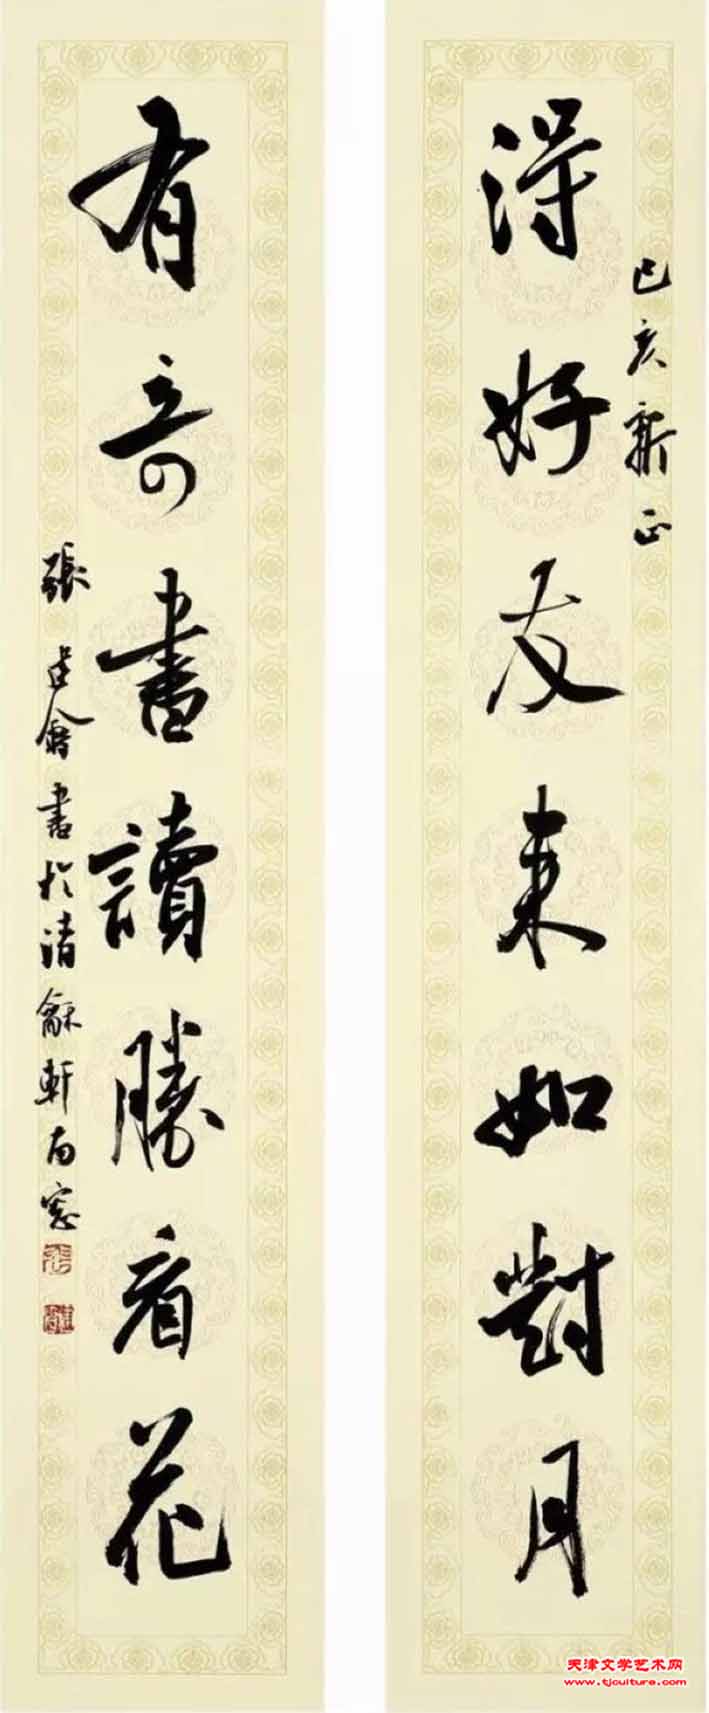 己亥新正
得好友来如對月
有奇書讀勝看花
張建會書於清龢軒南窓
天津文学艺术网
www.tjculture.com